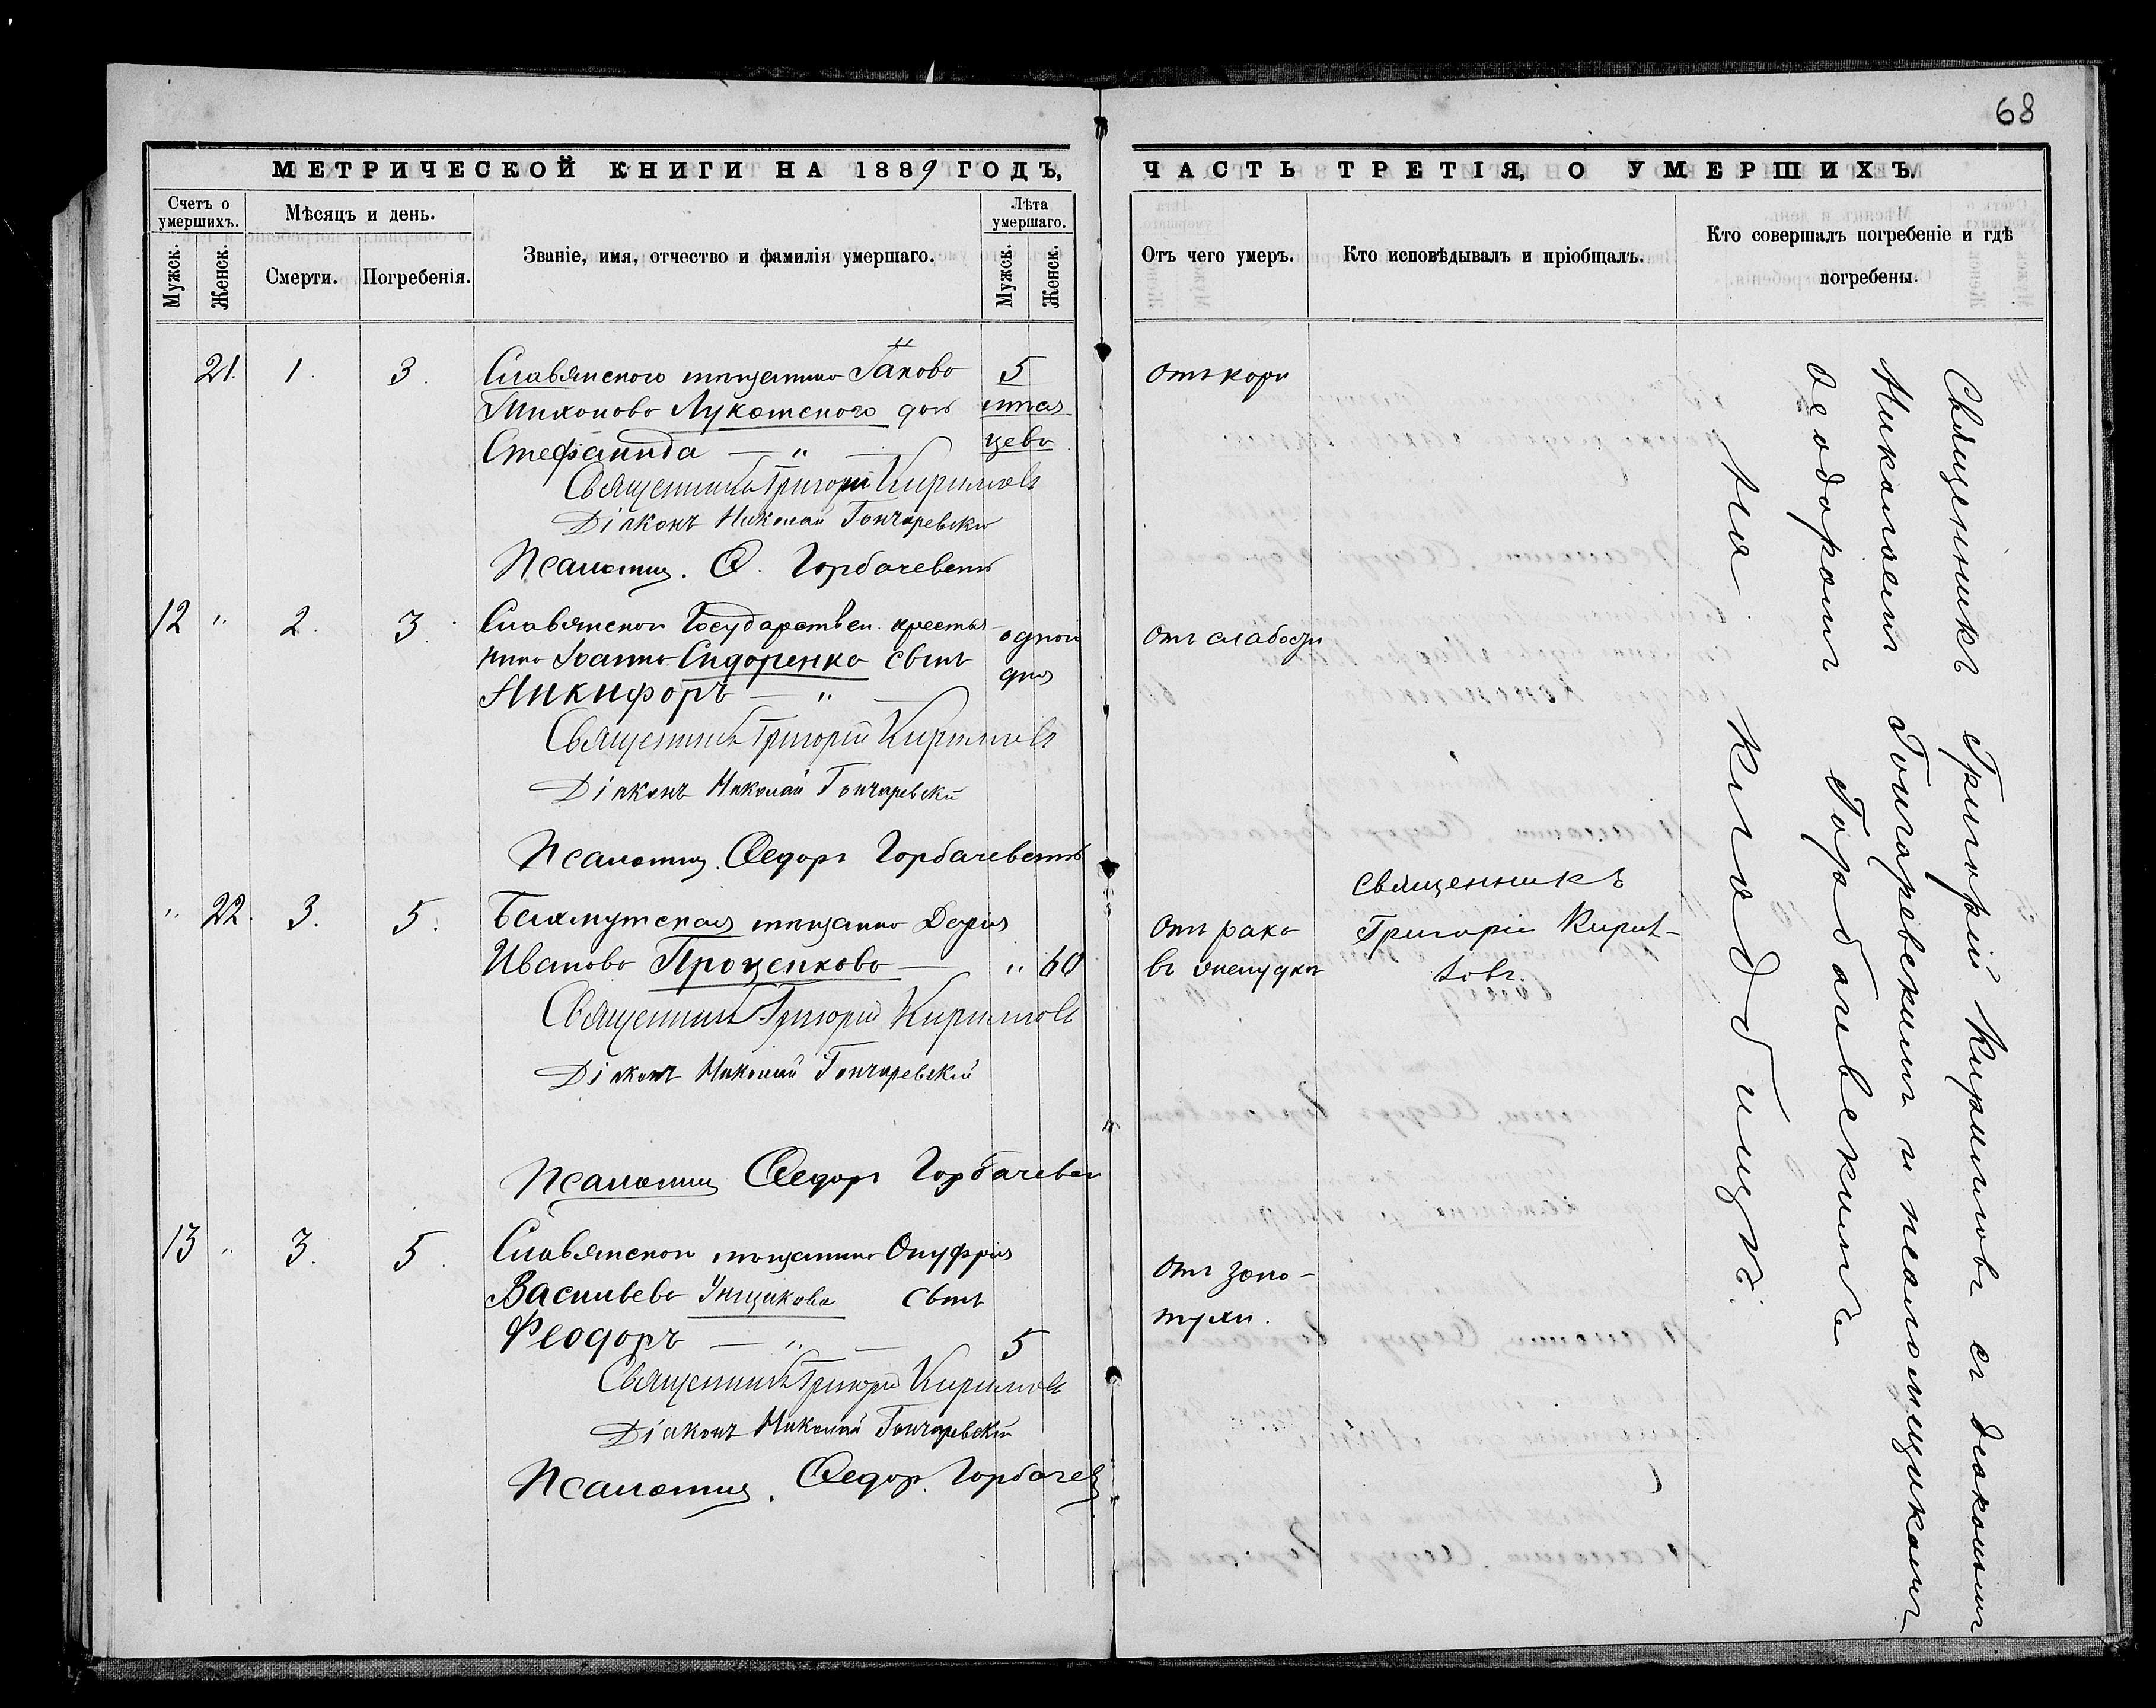 68
МЕТРИЧЕСКОЙ КНИГИ НА 1889 ГОДЪ,
ЧАСТЬ ТРЕТІЯ, О УМЕРШИХЪ.
Счетъ о умершихъ.
Мужск.
Женск.
Мѣсяцъ и день.
Смерти.
Погребенія.
Званіе, имя, отчество и фамилія умершаго.
Лѣта умершаго.
Мужск.
Женск.
Отъ чего умеръ.
Кто исповѣдывалъ и пріобщалъ.
Кто совершалъ погребеніе и гдѣ
погребены.
21. 1. 3. Славянского мѣщанина Іакова 5 Отъ кори
Тихонова Лукомского дочь мѣся
Стефанида — " — цевъ
Священникъ Григорій Кирилловъ
Діаконъ Николай Гончаревскій
Псаломщ. Ѳ. Горбачевскій
12 " 2. 3. Славянской Государствен. крестья- одного Отъ слабости
нина Іоанна Сидоренко сынъ дня
Никифоръ — " —
Священникъ Григорій Кирилловъ
Діаконъ Николай Гончаревскій
Псаломщ. Ѳедоръ Горбачевскій
" 22. 3. 5. Бахмутская мѣщанка Дарія Отъ рака Священникъ
Иванова Проценкова — " 60 въ желудкѣ Григорій Кирил-
ловъ.
Священникъ Григорій Кирилловъ
Діаконъ Николай Гончаревскій
Псаломщ Ѳедоръ Горбачевск
13 " 3. 5. Славянской мѣщанина Онуфрія Отъ золо-
Васильева сынъ тухи.
Феодоръ — " — 5
Священникъ Григорій Кирилловъ
Діаконъ Николай Гончаревскій
Псаломщ. Ѳедор. Горбачев
Священникъ Григорій Кирилловъ съ діакономъ
Николаемъ Гончаревскимъ и псаломщикомъ
Ѳеодоромъ Горбачевскимъ
На кладбищѣ.